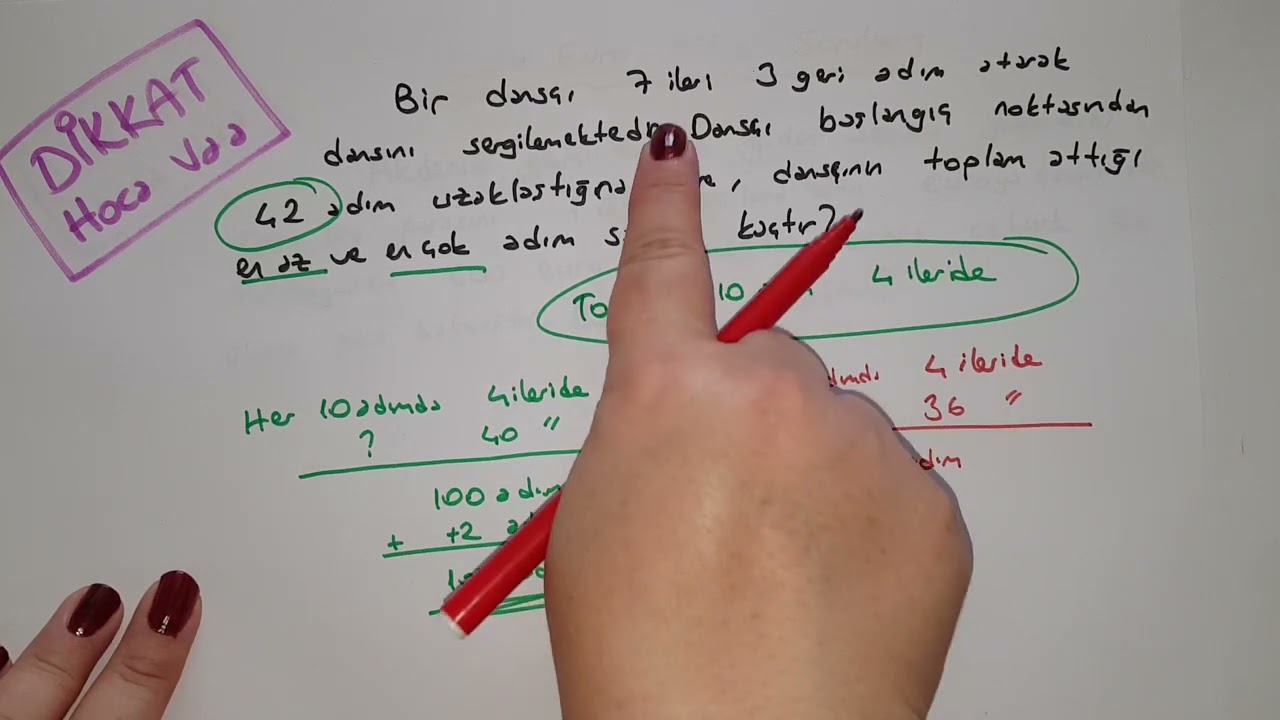 DİKKAT
Hoca Var
Bir dansçı 7 ileri 3 geri adım atarak
dansını sergilemektedir Dansçı başlangıç noktasından
42 adım uzaklaştığına , dansçının toplam attığı
en az ve en çok adım kaçtır?
10 4 ileride
Her 10 adımda 4 ileride
? 40 "
100 adım
+ +2
4 ileride
36 "